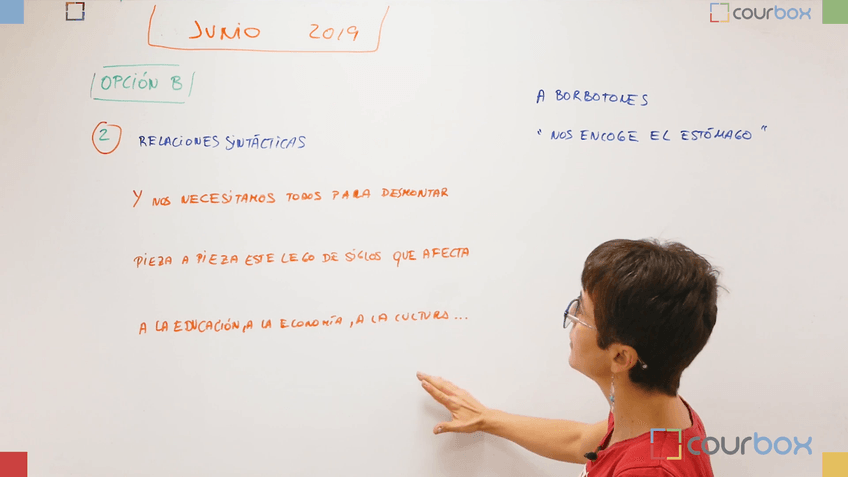 courbox
JUNIO 2019
OPCIÓN B
2 RELACIONES SINTÁCTICAS
Y NOS NECESITAMOS TODOS PARA DESMONTAR
PIEZA A PIEZA ESTE LEGO DE SIGLOS QUE AFECTA
A LA EDUCACIÓN, A LA ECONOMÍA, A LA CULTURA...
A BORBOTONES
"NOS ENCOGE EL ESTÓMAGO"
courbox